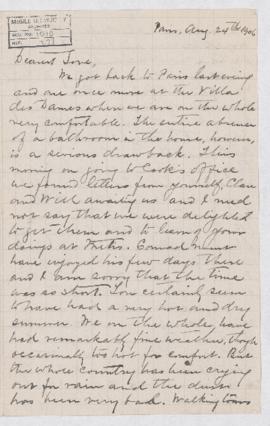 McGILL UNIVERSITY
ARCHIVES
ACC. NO. 1010
REF. 
Paris, Aug. 24th 1906
Dearest
We got back to Paris last evening
and are once more at the Villa
des Dames where we are on the whole
very comfortable. The entire absence
of a bathroom in the house, however,
is a serious drawback. This
morning on going to Cook's office
we found letters from yourself, Clare
and Will awaiting us and I need
not say that we were delighted
to get them and to learn your
doings at Metis. Conrad must
have enjoyed his few days there
and I am sorry that the time
was so short. You certainly seem
to have had a very hot and dry
summer. We on the whole have
had remarkably fine weather, though
occasionally too hot for comfort. But
the whole country has been crying
out for rain and the dust
has been very bad. Walking tours